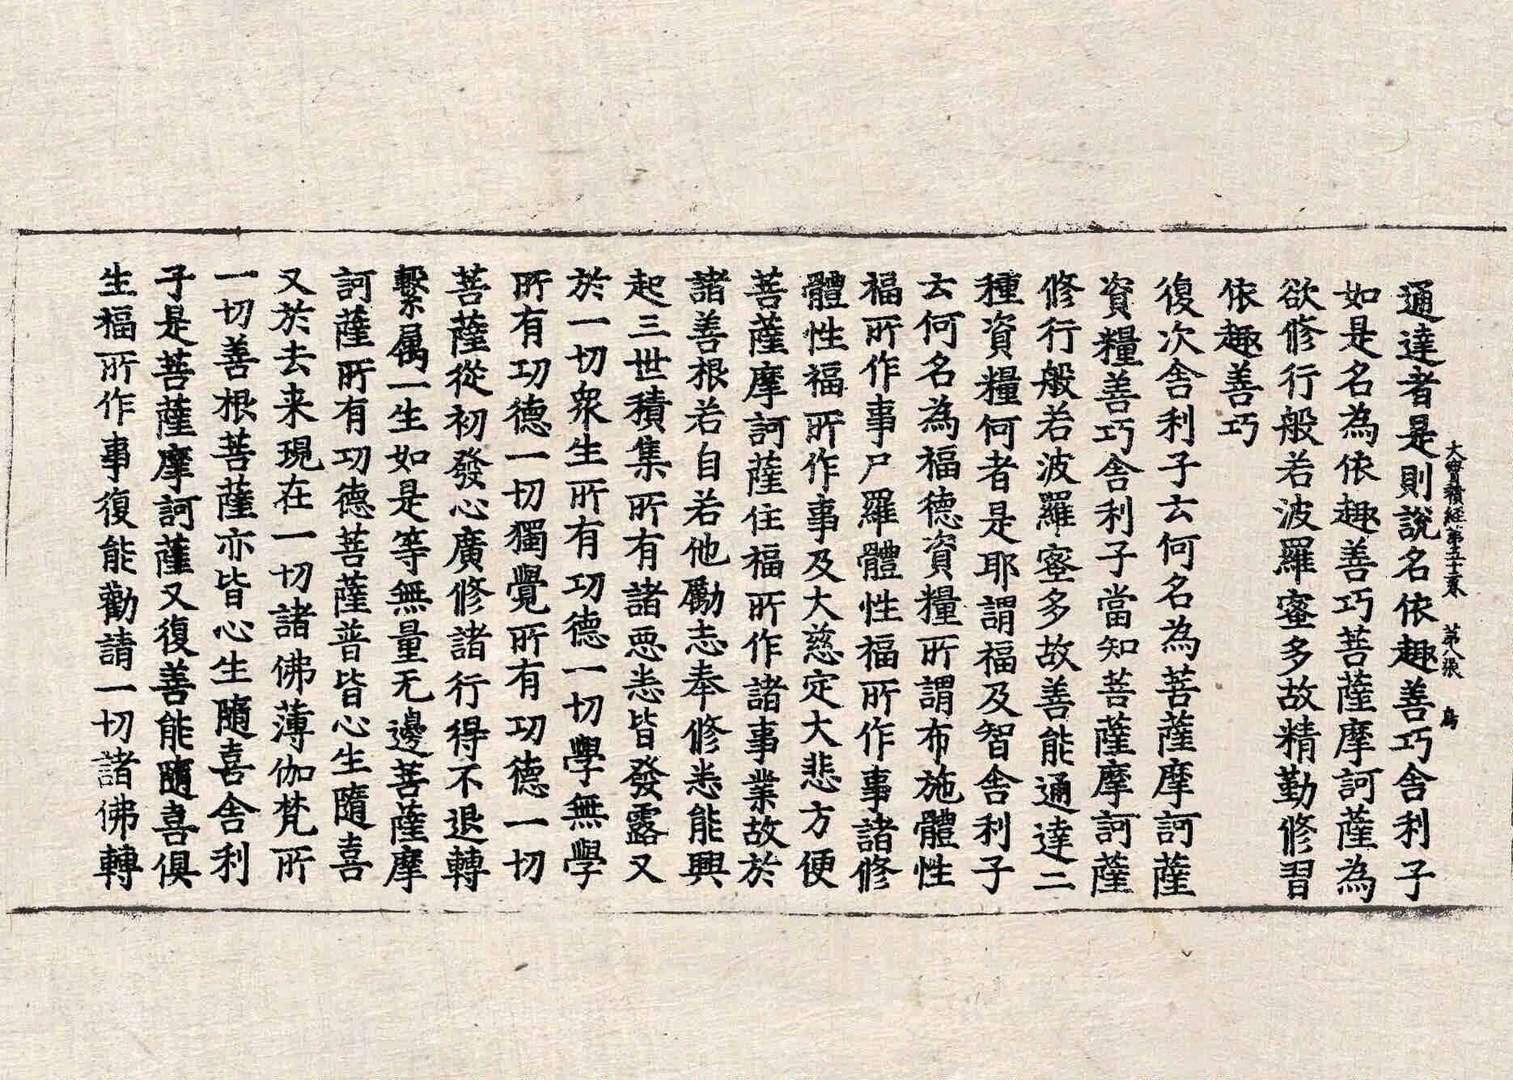 大寶積經第五十三卷 第八張 鳥
通達者是則說名依趣善巧舍利子
如是名為依趣善巧菩薩摩訶薩為
欲修行般若波羅蜜多故精勤修習
依趣善巧
復次舍利子云何名為菩薩摩訶薩
資糧善巧舍利子當知菩薩摩訶薩
修行般若波羅蜜多故善能通達二
種資糧何者是耶謂福及智舍利子
云何名為福德資糧所謂布施體性
福所作事尸羅體性福所作事諸修
體性福所作事及大慈定大悲方便
菩薩摩訶薩住福所作諸事業故於
諸善根若自若他勵志奉修悉能興
起三世積集所有諸惡悉皆發露又
於一切衆生所有功德一切學無學
所有功德一切獨覺所有功德一切
菩薩從初發心廣修諸行得不退轉
繫属一生如是等無量无邊菩薩摩
訶薩所有功德菩薩普皆心生隨喜
又於去来現在一切諸佛薄伽梵所
一切善根菩薩亦皆心生隨喜舍利
子是菩薩摩訶薩又復善能隨喜俱
生福所作事復能勸請一切諸佛轉